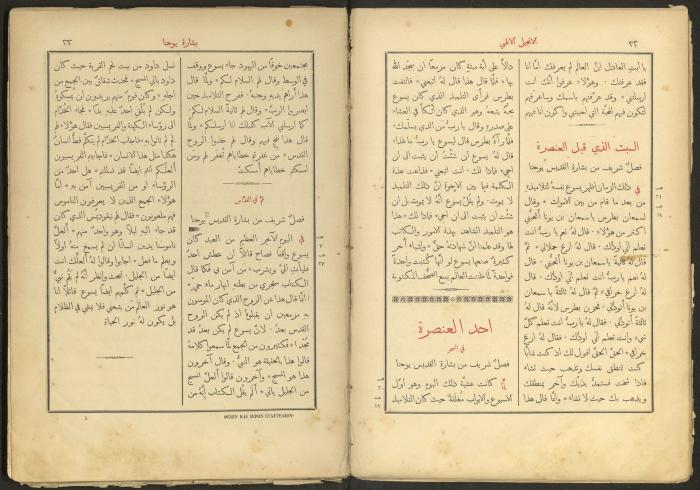 ٢٢
الانجيل الالهي
يا ابتِ العادل انَّ العالم لم يعرفك امَّا انا
فقد عرفتك وهؤلاء عرفوا أنَّك انت
ارسلتني وقد عرَّفتهم باسمك وسأعرّفهم
لتكون فيهم المحبَّة التي احببتني واكون انا فيهم
السبت الذي قبل العنصرة
فصلٌ شريف من بشارة القديس يوحنا
في ذلك الزمان اظهر يسوع نفسه لتلاميذه
من بعد ما قام من بين الاموات وقال
لسمعان بطرس يا سمعان بن يونا أتحبُّني
اكثر من هؤلاء قال لهُ نعم يا ربُّ انت
تعلم أنّي اودُّك قال لهُ ارعَ حملاني ثمَّ
قال لهُ ثانيةً يا سمعان بن يونا أتحبُّني قال
لهُ نعم يا ربُّ انت تعلم أنّي اودُّك قال
لهُ ارعَ خرافي ثمَّ قال لهُ ثالثةً يا سمعان
بن يونا أتودُّني فحزن بطرس لأنَّهُ قال لهُ
ثالثةً أتودُّني فقال لهُ يا ربُّ انت تعلم كلَّ
شيءٍ وانت تعلم أنّي اودُّك قال لهُ ارعَ
خرافي الحقَّ الحقَّ اقول لك اذ كنت شابًّا
كنت تمنطق نفسك وتذهب حيث تشاء
فاذا شخت فستمدُّ يديك وآخر يمنطقك
ويذهب بك حيث لا تشاء وانَّما قال هذا
دالًّا على أيَّة ميتةٍ كان مزمعًا ان يمجّد الله
بها فلمَّا قال هذا قال لهُ اتبعني فالتفت
بطرس فرأى التلميذ الذي كان يسوع
يحبُّهُ يتبعهُ وهو الذي كان اتَّكأ في العشاء
على صدرهِ وقال يا ربُّ من الذي يسلّمك
فلمَّا رآهُ بطرس قال ليسوع يا ربُّ ما لهذا
قال لهُ يسوع ان شئتُ ان يثبت الى ان
اجيء فماذا لك انت اتبعني فشاعت هذه
الكلمة فيما بين الاخوة أنَّ ذلك التلميذ
لا يموت ولم يقل يسوع أنَّهُ لا يموت بل ان
شئت ان يثبت الى ان اجيء فماذا لك هذا
هو التلميذ الشاهد بهذه الامور والكاتب
لها وقد علمنا أنَّ شهادتهُ حقٌّ واشياء أُخر
كثيرة صنعها يسوع لو أنَّها كُتبت واحدة
فواحدة لما ظننت العالم يسع الصحف المكتوبة
احد العنصرة
في السحر
فصلٌ شريف من بشارة القديس يوحنا
لمَّا كانت عشيَّة ذلك اليوم وهو اوَّل
الاسبوع والابواب مغلقةٌ حيث كان التلاميذ
بشارة يوحنا
٢٣
مجتمعين خوفًا من اليهود جاء يسوع ووقف
في الوسط وقال لهم السلام لكم ولمَّا قال
هذا أراهم يديهِ وجنبهُ ففرح التلاميذ حين
ابصروا الربَّ وقال لهم ثانيةً السلام لكم
كما ارسلني الآب كذلك انا ارسلكم ولمَّا
قال هذا نفخ فيهم وقال لهم خذوا الروح
القدس من غفرتم خطاياهم تُغفر لهم ومن
امسكتم خطاياهم أُمسكت
ثمَّ في القدَّاس
فصلٌ شريف من بشارة القديس يوحنا
في اليوم الآخر العظيم من العيد كان
يسوع واقفًا فصاح قائلًا ان عطش احد
فليأتِ اليَّ ويشرب من آمن بي فكما قال
الكتاب ستجري من بطنهِ انهار ماء حيّ
انَّما قال هذا عن الروح الذي كان المؤمنون
بهِ مزمعين ان يقبلوهُ اذ لم يكن الروح
القدس بعدُ لأنَّ يسوع لم يكن بعدُ قد
مُجّد فكثيرون من الجمع لمَّا سمعوا كلامهُ
قالوا هذا بالحقيقة هو النبيّ وقال آخرون
هذا هو المسيح وآخرون قالوا ألعلَّ المسيح
من الجليل يأتي ألم يقل الكتاب إنَّهُ من
نسل داود من بيت لحم القرية حيث كان
داود يأتي المسيح فحدث شقاقٌ بين الجمع من
اجلهِ وكان قومٌ منهم يريدون ان يمسكوهُ
ولكن لم يُلقِ احدٌ عليهِ يدًا فجاء الخدَّام
الى رؤساء الكهنة والفريسيين فقال هؤلاء لهم
لِمَ لم تأتوا بهِ فاجاب الخدَّام لم يتكلَّم قطُّ انسانٌ
هكذا مثل هذا الانسان فاجابهم الفريسيون
ألعلَّكم انتم ايضًا قد ضللتم هل احدٌ من
الرؤساء او من الفريسيين آمن بهِ امَّا
هؤلاء الجمع الذين لا يعرفون الناموس
فهم ملعونون فقال لهم نيقوديموس الذي كان
قد جاء اليهِ ليلًا وهو واحدٌ منهم ألعلَّ
ناموسنا يدين انسانًا ان لم يسمع منهُ اولًا
ويعلم ما فعل اجابوا وقالوا لهُ ألعلَّك انت
ايضًا من الجليل ابحث وانظر أنَّهُ لم يقم نبيٌّ
من الجليل ثمَّ كلَّمهم ايضًا يسوع قائلًا انا
هو نور العالم من يتبعني فلا يمشي في الظلام
بل يكون لهُ نور الحياة
ΘΕΙΟΝ ΚΑΙ ΙΕΡΟΝ ΕΥΑΓΓΕΛΙΟΝ